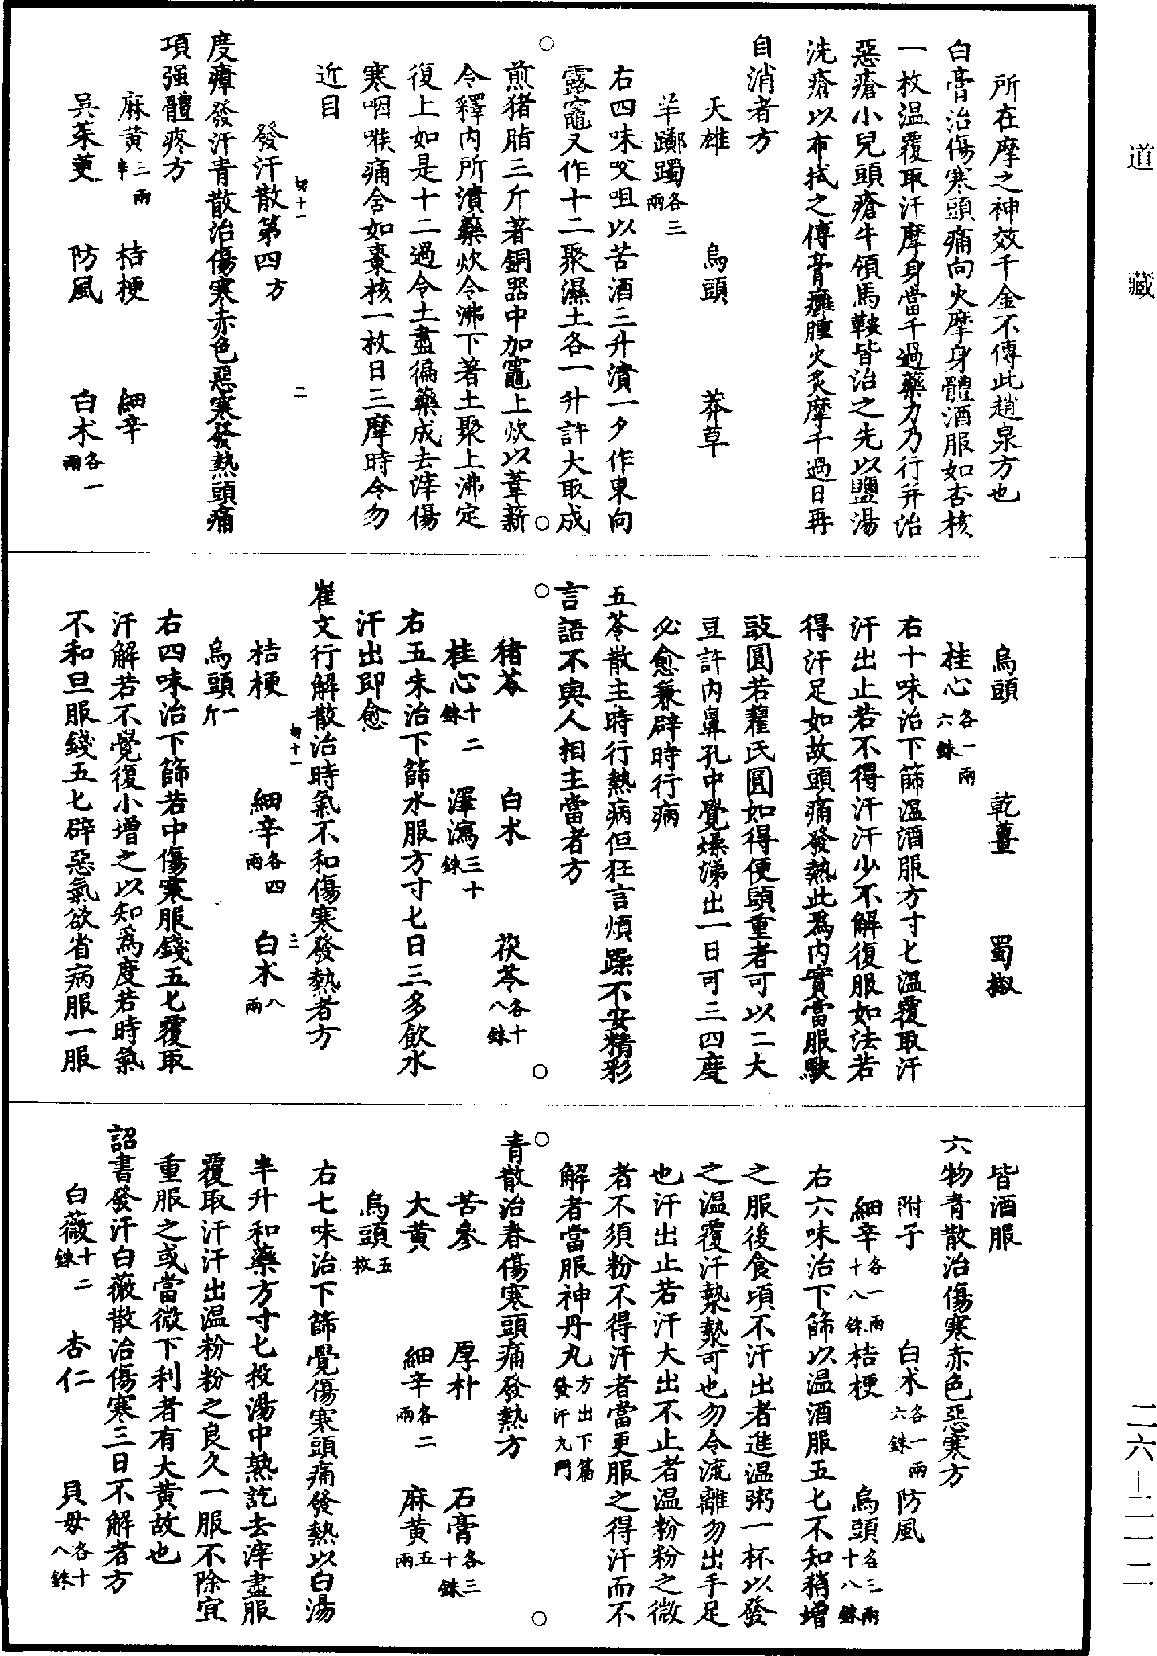 道藏
所在摩之神效千金不傳此趙泉方也
白膏治傷寒頭痛向火摩身體酒服如杏核
一枚温覆取汗摩身當千過藥力乃行并治
惡瘡小兒頭瘡牛領馬鞍皆治之先以鹽湯
洗瘡以布拭之傅膏癰腫火炙摩千過日再
自消者方
天雄 烏頭 莽草
羊躑躅各三兩
右四味㕮咀以苦酒三升漬一夕作東向
露竈又作十二聚濕土各一升許大取成
煎猪脂三斤著銅器中加竈上炊以葦薪
令釋内所漬藥炊令沸下著土聚上沸定
復上如是十二過令土盡徧藥成去滓傷
寒咽喉痛含如棗核一枚日三摩時令勿
近目
發汗散第四方
切十一 二
度瘴發汗青散治傷寒赤色惡寒發熱頭痛
項强體疼方
麻黄三兩半 桔梗 細辛
吳茱萸 防風 白术各一兩
烏頭 乾薑 蜀椒
桂心各一兩六銖
右十味治下篩温酒服方寸匕温覆取汗
汗出止若不得汗汗少不解復服如法若
得汗足如故頭痛發熱此爲内實當服駃
豉圓若藋氏圓如得便頭重者可以二大
豆許内鼻孔中覺燥涕出一日可三四度
必愈兼辟時行病
五苓散主時行熱病但狂言煩躁不安精彩
言語不與人相主當者方
猪苓 白术 茯苓各十八銖
桂心十二銖 澤瀉三十銖
右五味治下篩水服方寸匕日三多飲水
汗出即愈
崔文行解散治時氣不和傷寒發熱者方
切十一 三
桔梗 細辛各四兩 白术八兩
烏頭一斤
右四味治下篩若中傷寒服錢五匕覆取
汗解若不覺復小增之以知爲度若時氣
不和旦服錢五匕辟惡氣欲省病服一服
皆酒服
六物青散治傷寒赤色惡寒方
附子 白术各一兩六銖 防風
細辛各一兩十八銖 桔梗 烏頭各三兩十八銖
右六味治下篩以温酒服五匕不知稍增
之服後食頃不汗出者進温粥一杯以發
之温覆汗漐漐可也勿令流離勿出手足
也汗出止若汗大出不止者温粉粉之微
者不須粉不得汗者當更服之得汗而不
解者當服神丹丸方出下篇發汗丸門
青散治春傷寒頭痛發熱方
苦參 厚朴 石膏各三十銖
大黄 細辛各二兩 麻黄五兩
烏頭五枚
右七味治下篩覺傷寒頭痛發熱以白湯
半升和藥方寸匕投湯中熟訖去滓盡服
覆取汗汗出温粉粉之良久一服不除宜
重服之或當微下利者有大黄故也
詔書發汗白薇散治傷寒三日不解者方
白薇十二銖 杏仁 貝母各十八銖
二六—二一二